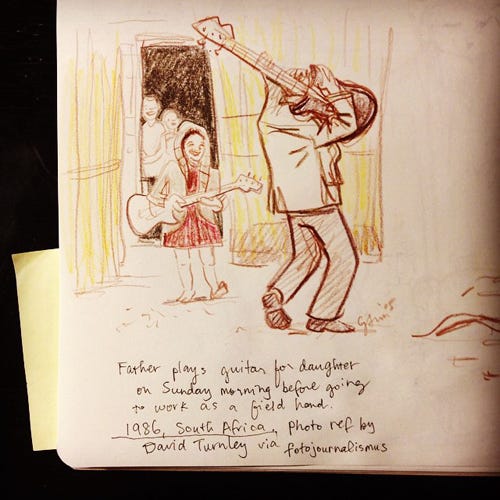 Father plays guitar for daughter
on Sunday morning before going
to work as a field hand.
1986, South Africa, photo ref by
David Turnley via fotojournalismus